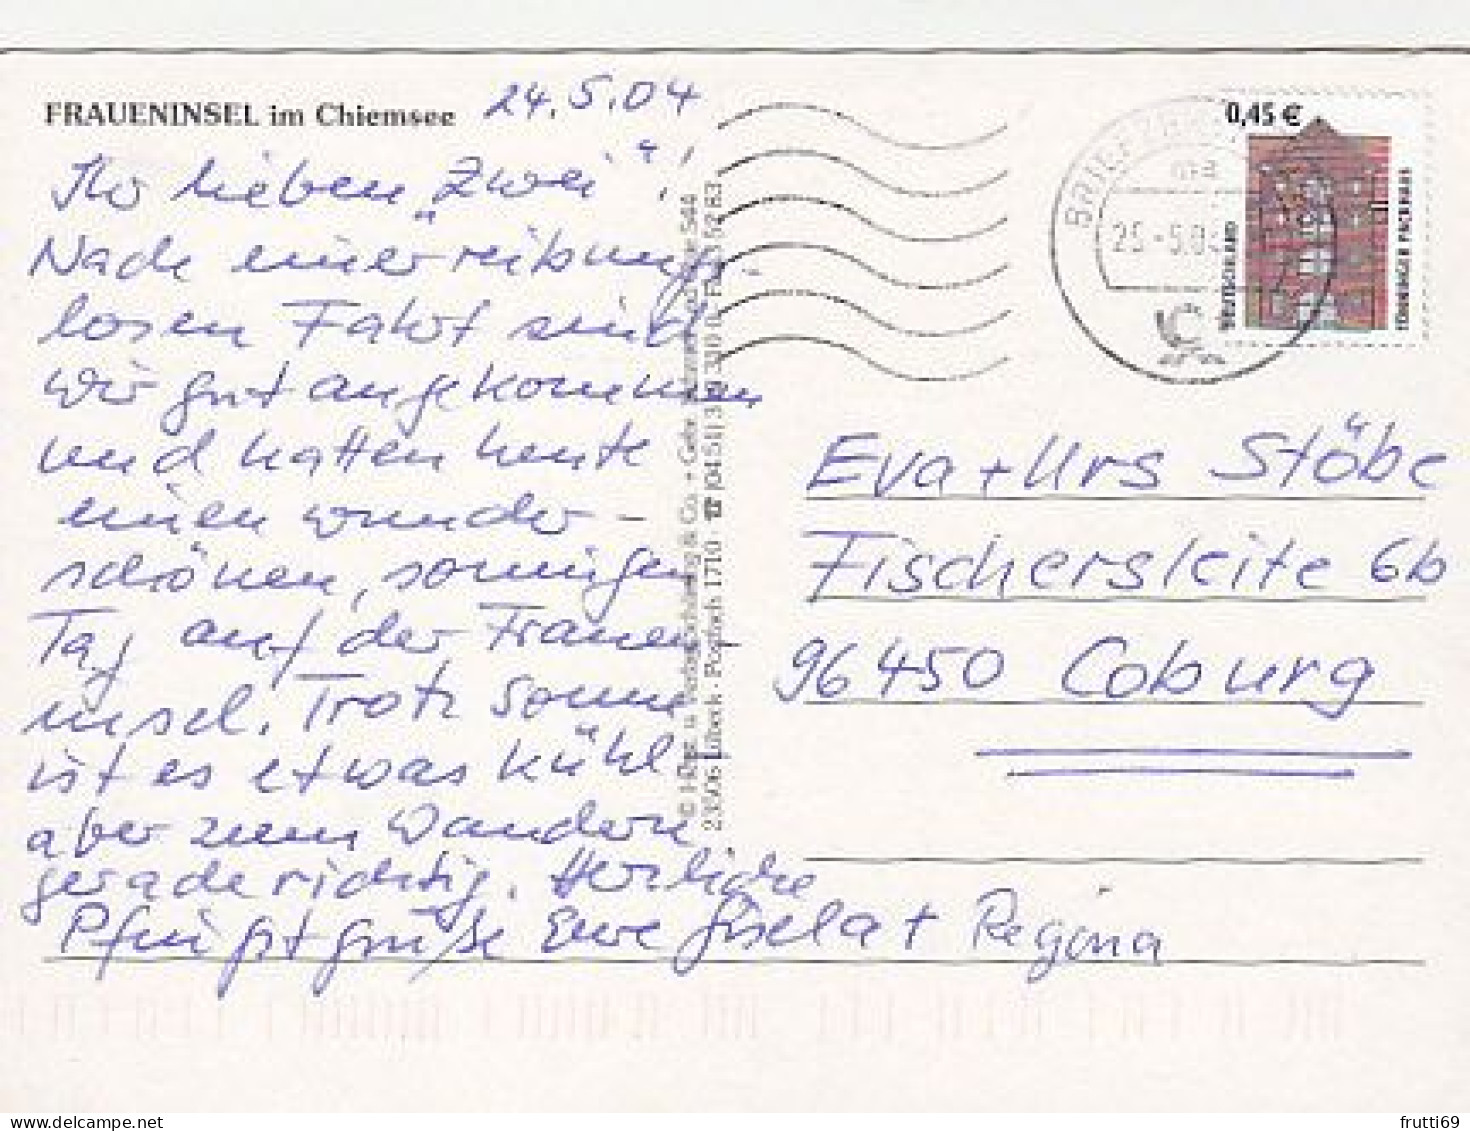 FRAUENINSEL im Chiemsee
24.5.04
Ihr lieben „Zwei“!
Nach einer reibungs-
losen Fahrt sind
wir gut angekommen
und hatten heute
einen wunder-
schönen, sonnigen
Tag auf der Frauen-
insel. Trotz Sonne
ist es etwas kühl
aber zum Wandern
gerade richtig. Herzliche
Pfingstgrüße Eure Gisela + Regina
23506 Lübeck · Postfach 1710 · ☎ (0451)
0,45 €
DEUTSCHLAND
TÖNNINGER PACKHAUS
25.-5.04
Eva + Urs Stöbe
Fischersleite 6b
96450 Coburg
frutti69